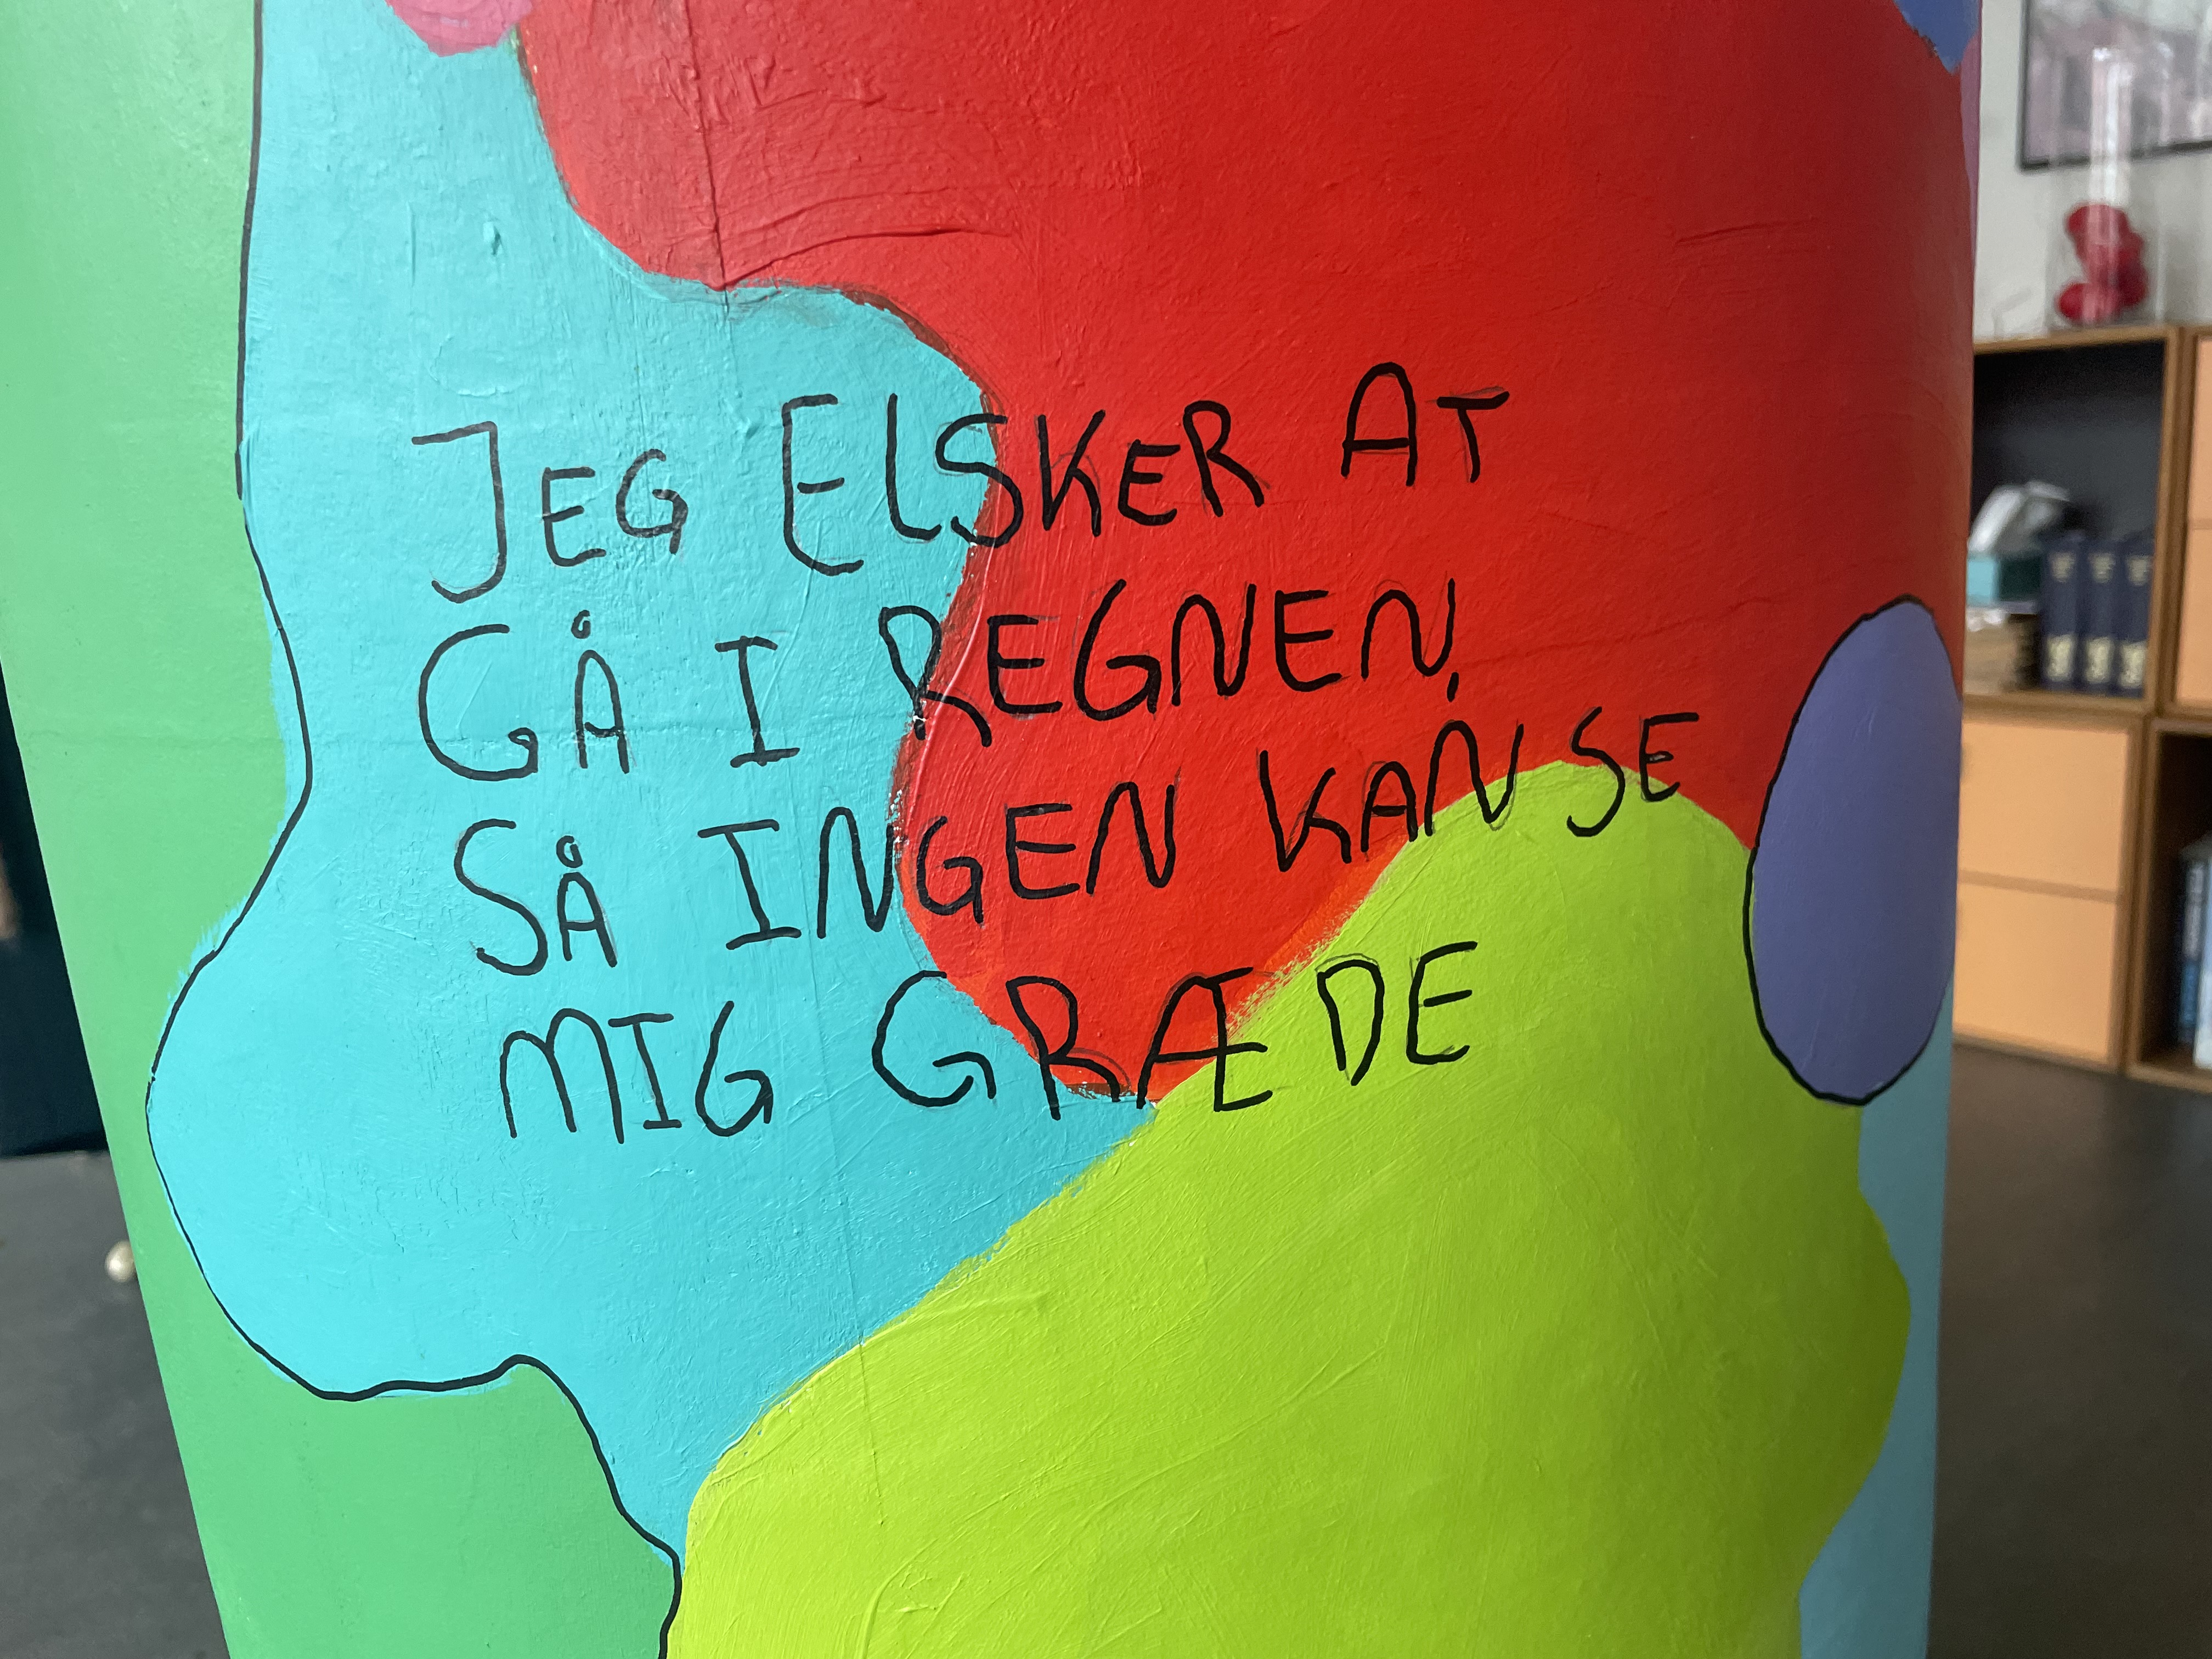 JEG ELSKER AT
GÅ I REGNEN,
SÅ INGEN KAN SE
MIG GRÆDE